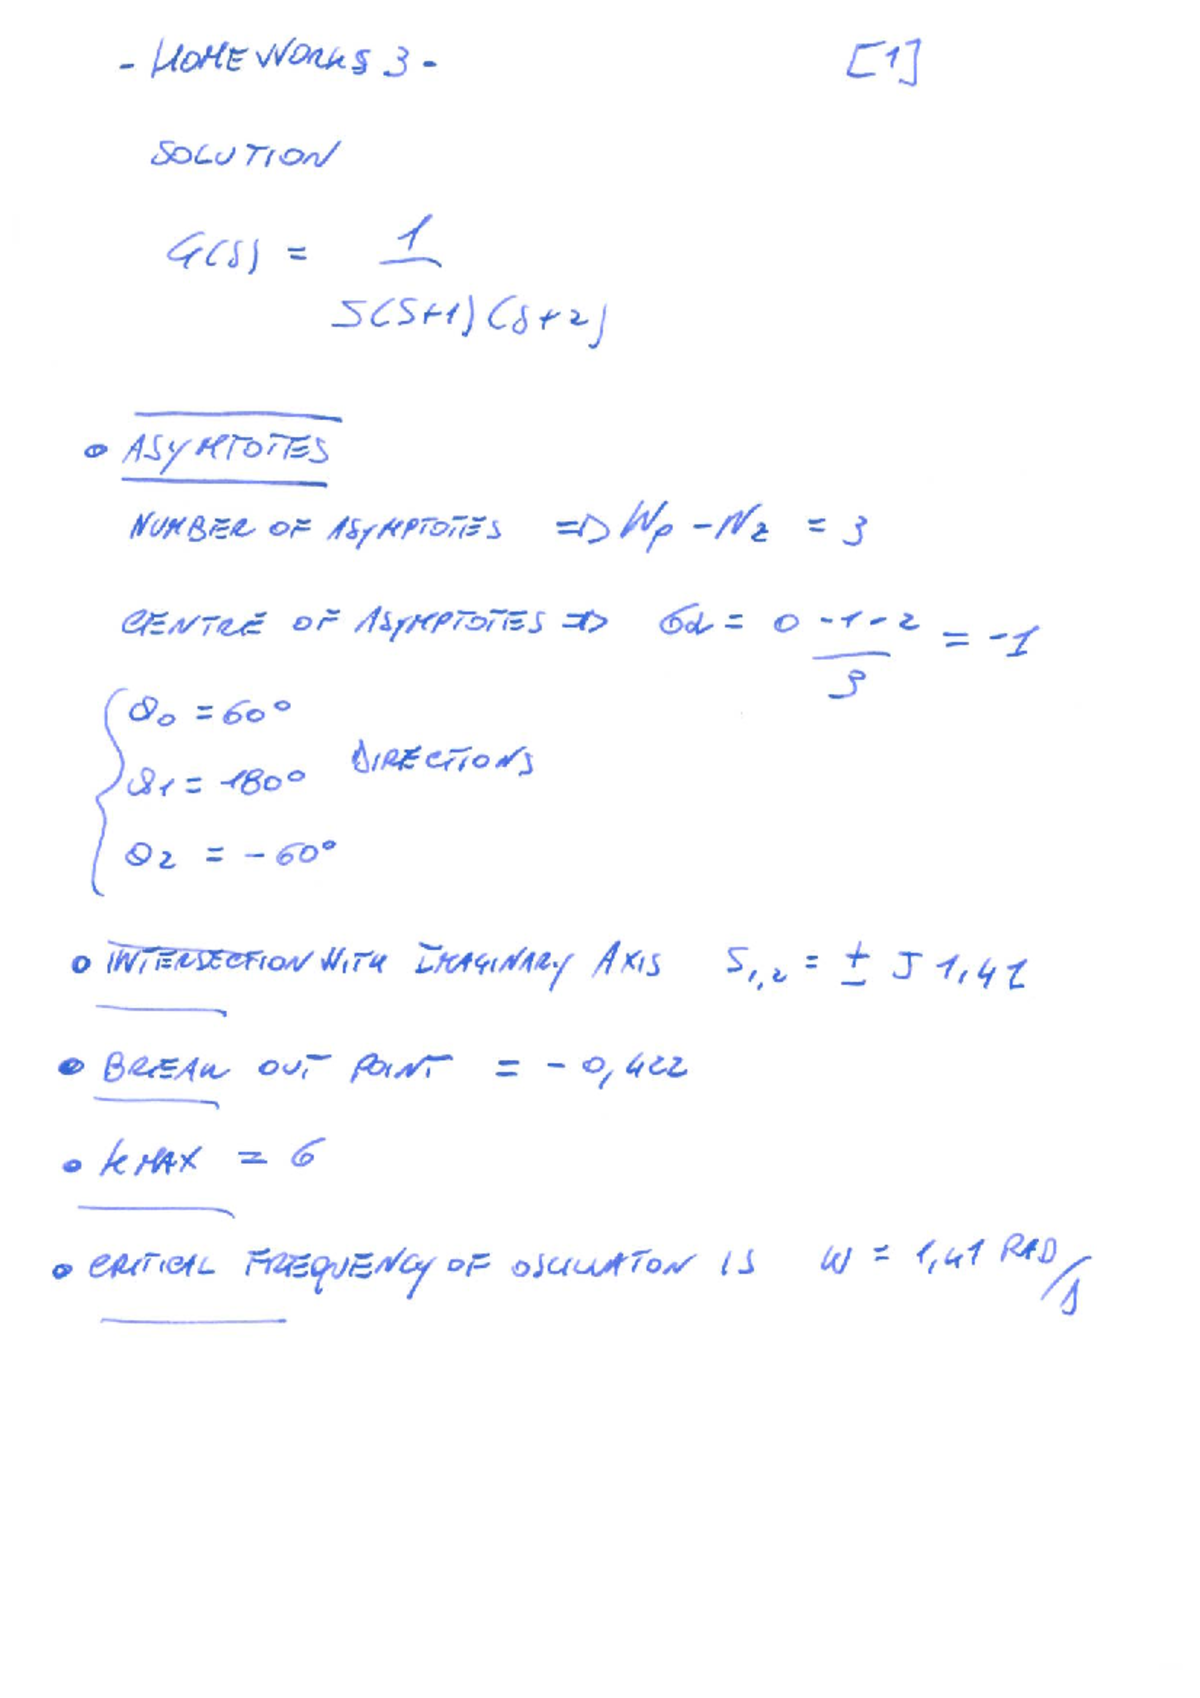 - HOMEWORKS 3 - [1]
SOLUTION
G(s) = 1
S(S+1)(s+2)
• ASYMTOTES
NUMBER OF ASYMPTOTES => Np - Nz = 3
CENTRE OF ASYMPTOTES => σa = 0 -1 -2 = -1
3
θ0 = 60°
θ1 = 180° DIRECTIONS
θ2 = -60°
• INTERSECTION WITH IMAGINARY AXIS S1,2 = ± J 1,41
• BREAK OUT POINT = -0,422
• KMAX = 6
• CRITICAL FREQUENCY OF OSCILLATON IS W = 1,41 RAD/s